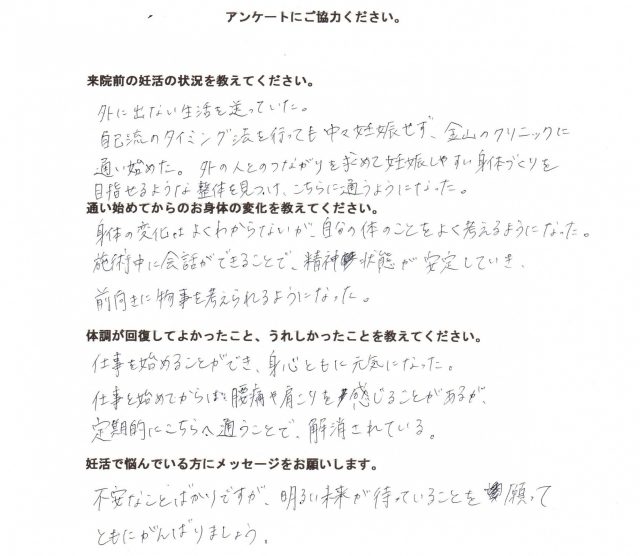 アンケートにご協力ください。
来院前の妊活の状況を教えてください。
外に出ない生活を送っていた。
自己流のタイミング法を行っても中々妊娠せず、金山のクリニックに
通い始めた。外の人とのつながりを求めて妊娠しやすい身体づくりを
目指せるような整体を見つけ、こちらに通うようになった。
通い始めてからのお身体の変化を教えてください。
身体の変化はよくわからないが、自分の体のことをよく考えるようになった。
施術中に会話ができることで、精神状態が安定していき、
前向きに物事を考えられるようになった。
体調が回復してよかったこと、うれしかったことを教えてください。
仕事を始めることができ、身心ともに元気になった。
仕事を始めてからは腰痛や肩こりを感じることがあるが、
定期的にこちらへ通うことで、解消されている。
妊活で悩んでいる方にメッセージをお願いします。
不安なことばかりですが、明るい未来が待っていることを願って
ともにがんばりましょう。